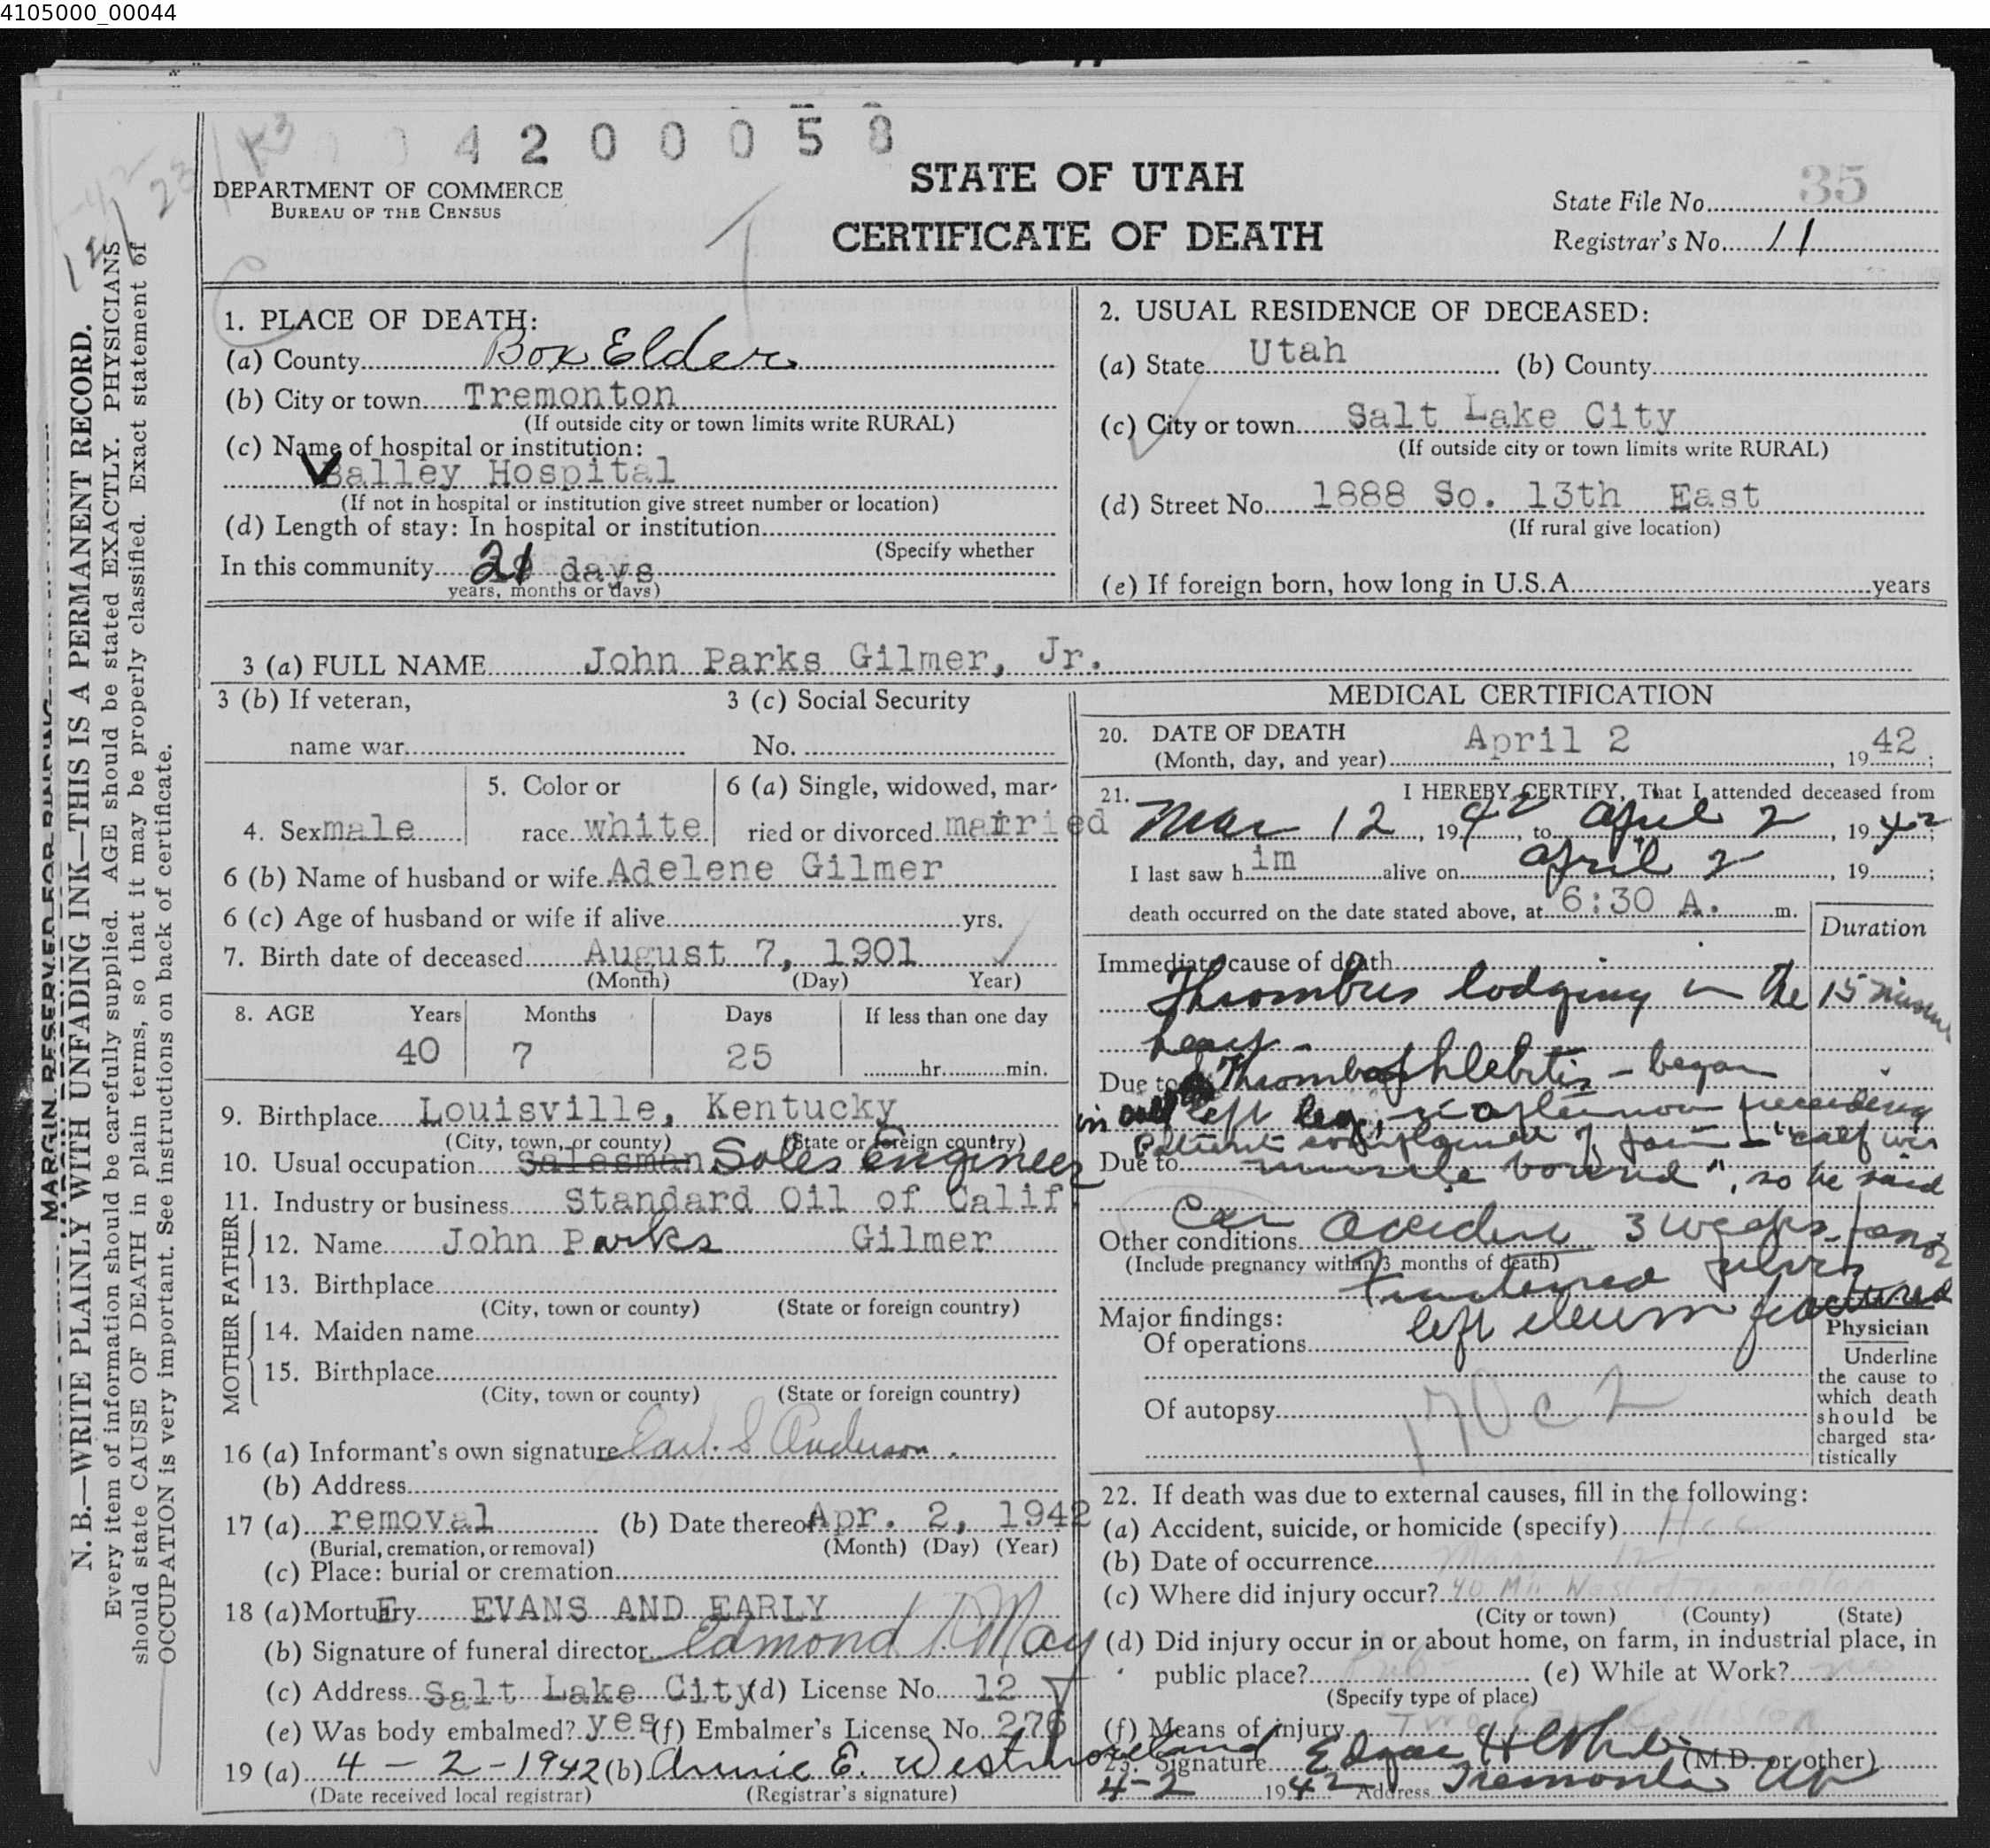 4105000_00044
4 2 0 0 0 5 8
DEPARTMENT OF COMMERCE
BUREAU OF THE CENSUS
STATE OF UTAH
CERTIFICATE OF DEATH
35
State File No.
Registrar's No. 11
MARGIN RESERVED FOR BINDING
N. B.—WRITE PLAINLY WITH UNFADING INK—THIS IS A PERMANENT RECORD.
Every item of information should be carefully supplied. AGE should be stated EXACTLY. PHYSICIANS
should state CAUSE OF DEATH in plain terms, so that it may be properly classified. Exact statement of
OCCUPATION is very important. See instructions on back of certificate.
1. PLACE OF DEATH:
(a) County Box Elder
(b) City or town Tremonton
(If outside city or town limits write RURAL)
(c) Name of hospital or institution:
Valley Hospital
(If not in hospital or institution give street number or location)
(d) Length of stay: In hospital or institution
(Specify whether
In this community 21 days
years, months or days)
2. USUAL RESIDENCE OF DECEASED:
(a) State Utah (b) County
(c) City or town Salt Lake City
(If outside city or town limits write RURAL)
(d) Street No. 1888 So. 13th East
(If rural give location)
(e) If foreign born, how long in U.S.A. years
3 (a) FULL NAME John Parks Gilmer, Jr.
3 (b) If veteran, 3 (c) Social Security
name war No.
4. Sex male 5. Color or race white 6 (a) Single, widowed, mar-
ried or divorced married
6 (b) Name of husband or wife Adelene Gilmer
6 (c) Age of husband or wife if alive yrs.
7. Birth date of deceased August 7, 1901
(Month) (Day) Year)
8. AGE Years Months Days If less than one day
40 7 25 hr. min.
9. Birthplace Louisville, Kentucky
(City, town, or county) (State or foreign country)
10. Usual occupation Salesman Sales Engineer
11. Industry or business Standard Oil of Calif
FATHER
12. Name John Parks Gilmer
13. Birthplace
(City, town or county) (State or foreign country)
MOTHER
14. Maiden name
15. Birthplace
(City, town or county) (State or foreign country)
16 (a) Informant's own signature Earl S Anderson.
(b) Address
17 (a) removal (b) Date thereof Apr. 2, 1942
(Burial, cremation, or removal) (Month) (Day) (Year)
(c) Place: burial or cremation
18 (a) Mortuary EVANS AND EARLY
(b) Signature of funeral director Edmond May
(c) Address Salt Lake City (d) License No. 12
(e) Was body embalmed? yes (f) Embalmer's License No. 276
19 (a) 4-2-1942 (b) Annie E. Westmoreland
(Date received local registrar) (Registrar's signature)
MEDICAL CERTIFICATION
20. DATE OF DEATH
(Month, day, and year) April 2, 1942;
21. I HEREBY CERTIFY, That I attended deceased from
Mar 12, 1942, to April 2, 1942;
I last saw him alive on April 2, 19 ;
death occurred on the date stated above, at 6:30 A. m.
Duration
Immediate cause of death
Thrombus lodging in the 15
heart -
Due to Thrombophlebitis - began
in calf left leg, afternoon preceding
Patient complained of pain - "calf was
Due to muscle bound", so he said
Car accident 3 weeks
Other conditions
(Include pregnancy within 3 months of death)
fractured pelvis
left ileum fractured
Major findings:
Of operations
Of autopsy
170c2
Physician
Underline
the cause to
which death
should be
charged sta-
tistically
22. If death was due to external causes, fill in the following:
(a) Accident, suicide, or homicide (specify) Acc
(b) Date of occurrence Mar 12
(c) Where did injury occur? 40 Mi. West of Tremonton
(City or town) (County) (State)
(d) Did injury occur in or about home, on farm, in industrial place, in
public place? Pub- (e) While at Work? no
(Specify type of place)
(f) Means of injury Two Car Collision
23. Signature Edgar H (M.D. or other)
4-2 1942 Address Tremonton